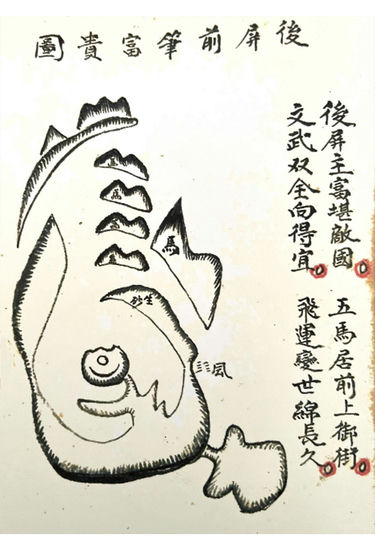 後屏前筆富貴圖
後屏主富堪敵國 五馬居前上御街
文武双全向得宜 飛運變世綿長久
馬
馬
馬
馬
馬